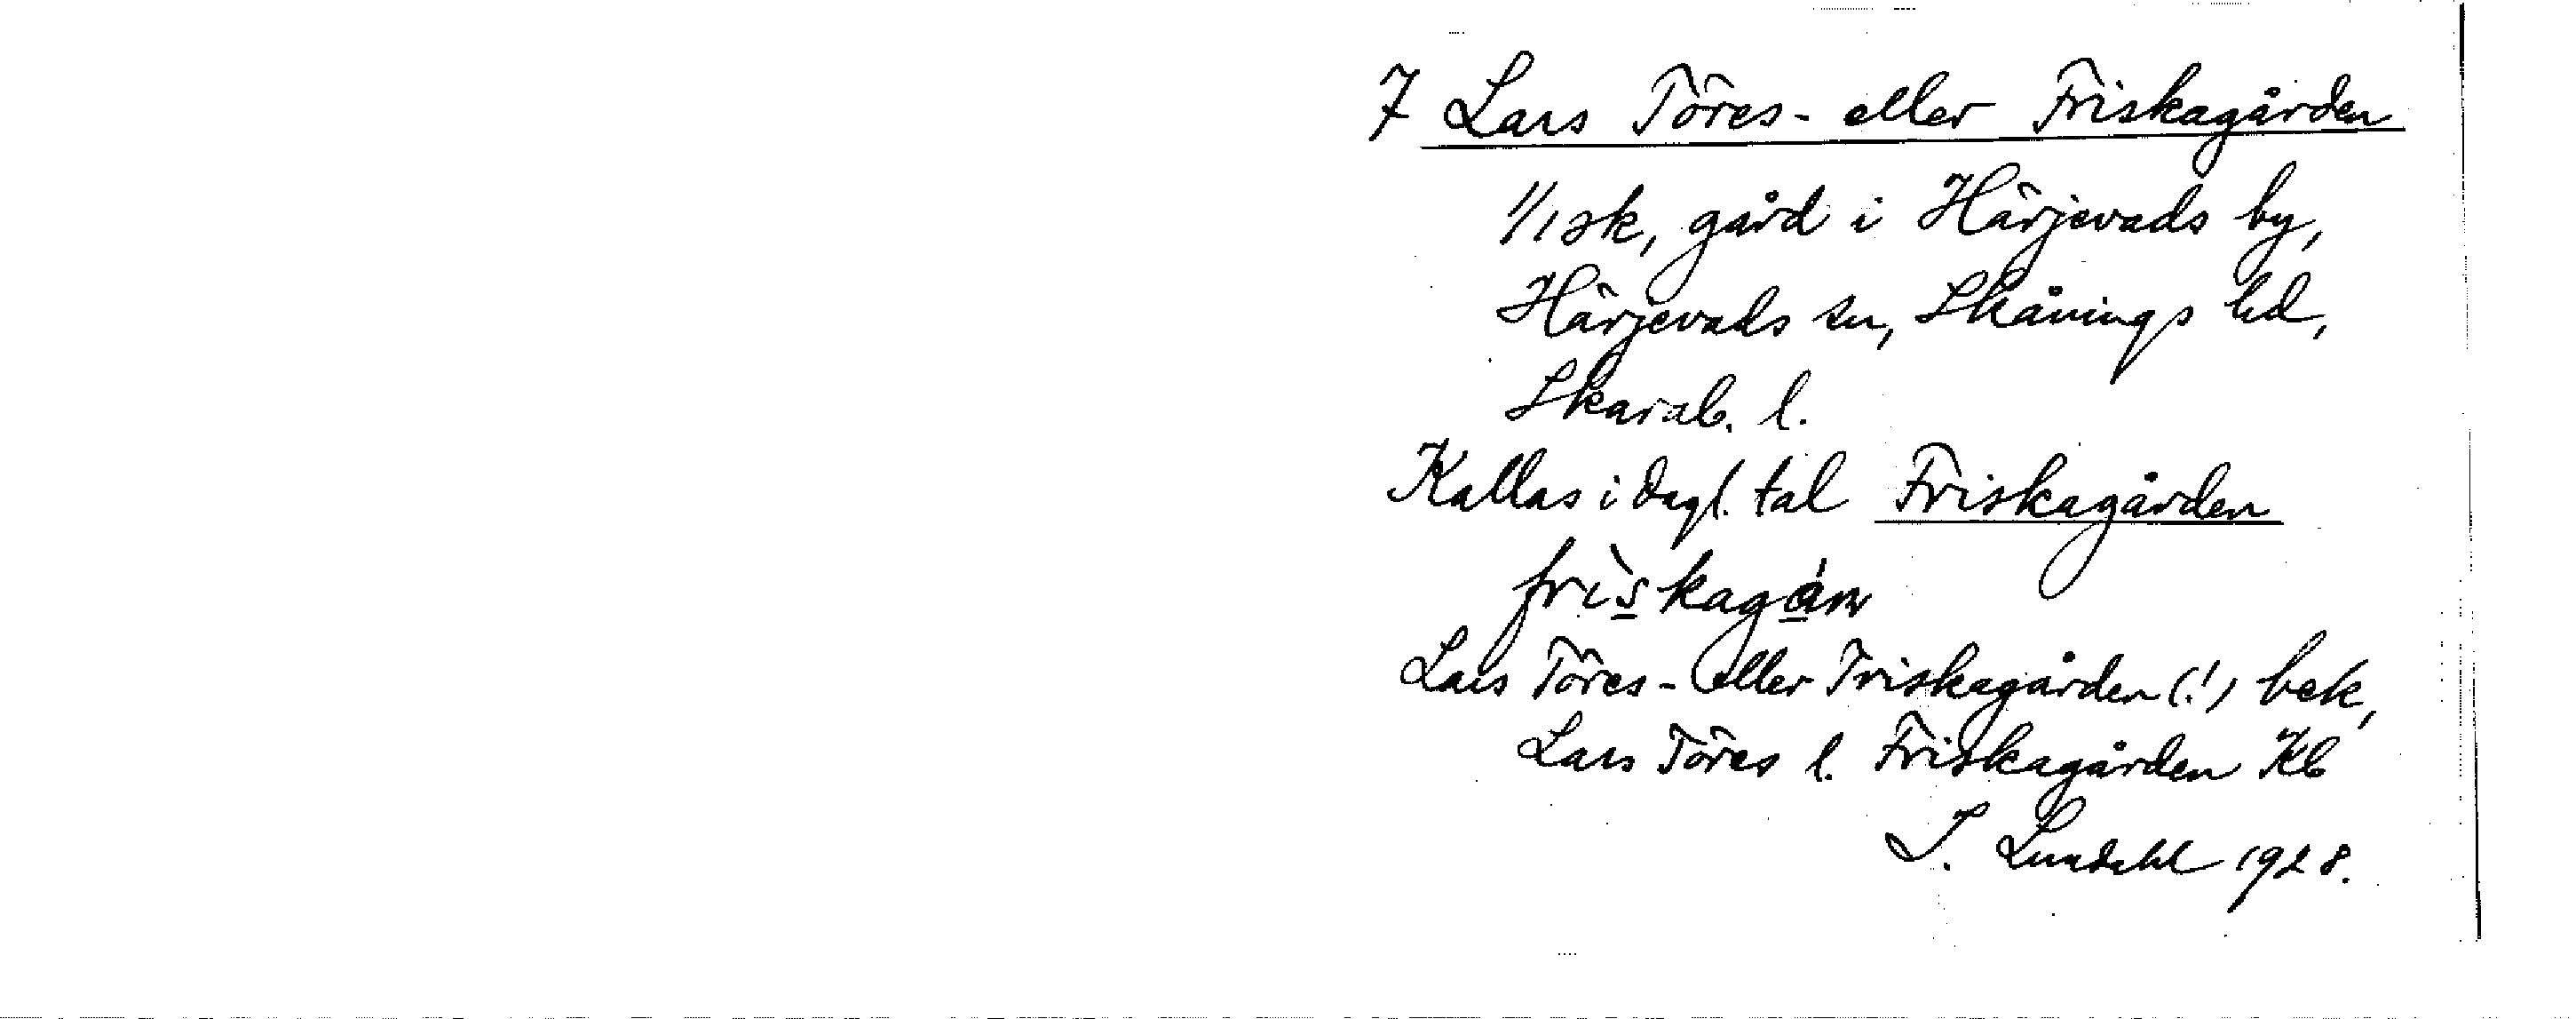 7 Lars Töres- eller Friskagården
1/1 sk, gård i Härjevads by,
Härjevads sn, Skånings hd,
Skarab. l.
Kallas i dagl. tal Friskagården
Lars Töres- eller Friskagården (!) bek,
Lars Töres l. Friskagården Kb
I. Lundahl 1928.